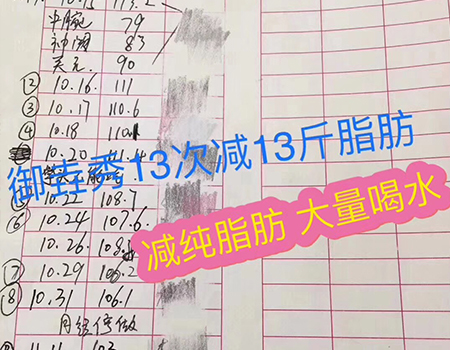 10.15 113.2
中脘 79
神阙 83
关元 90
② 10.16. 111
③ 10.17 110.6
④ 10.18 110.1
10.20
御垚秀13次减13斤脂肪
10.22 108.7
⑥ 10.24 107.6
减纯脂肪 大量喝水
10.26
⑦ 10.29 106.2
⑧ 10.31 106.1
月经停做